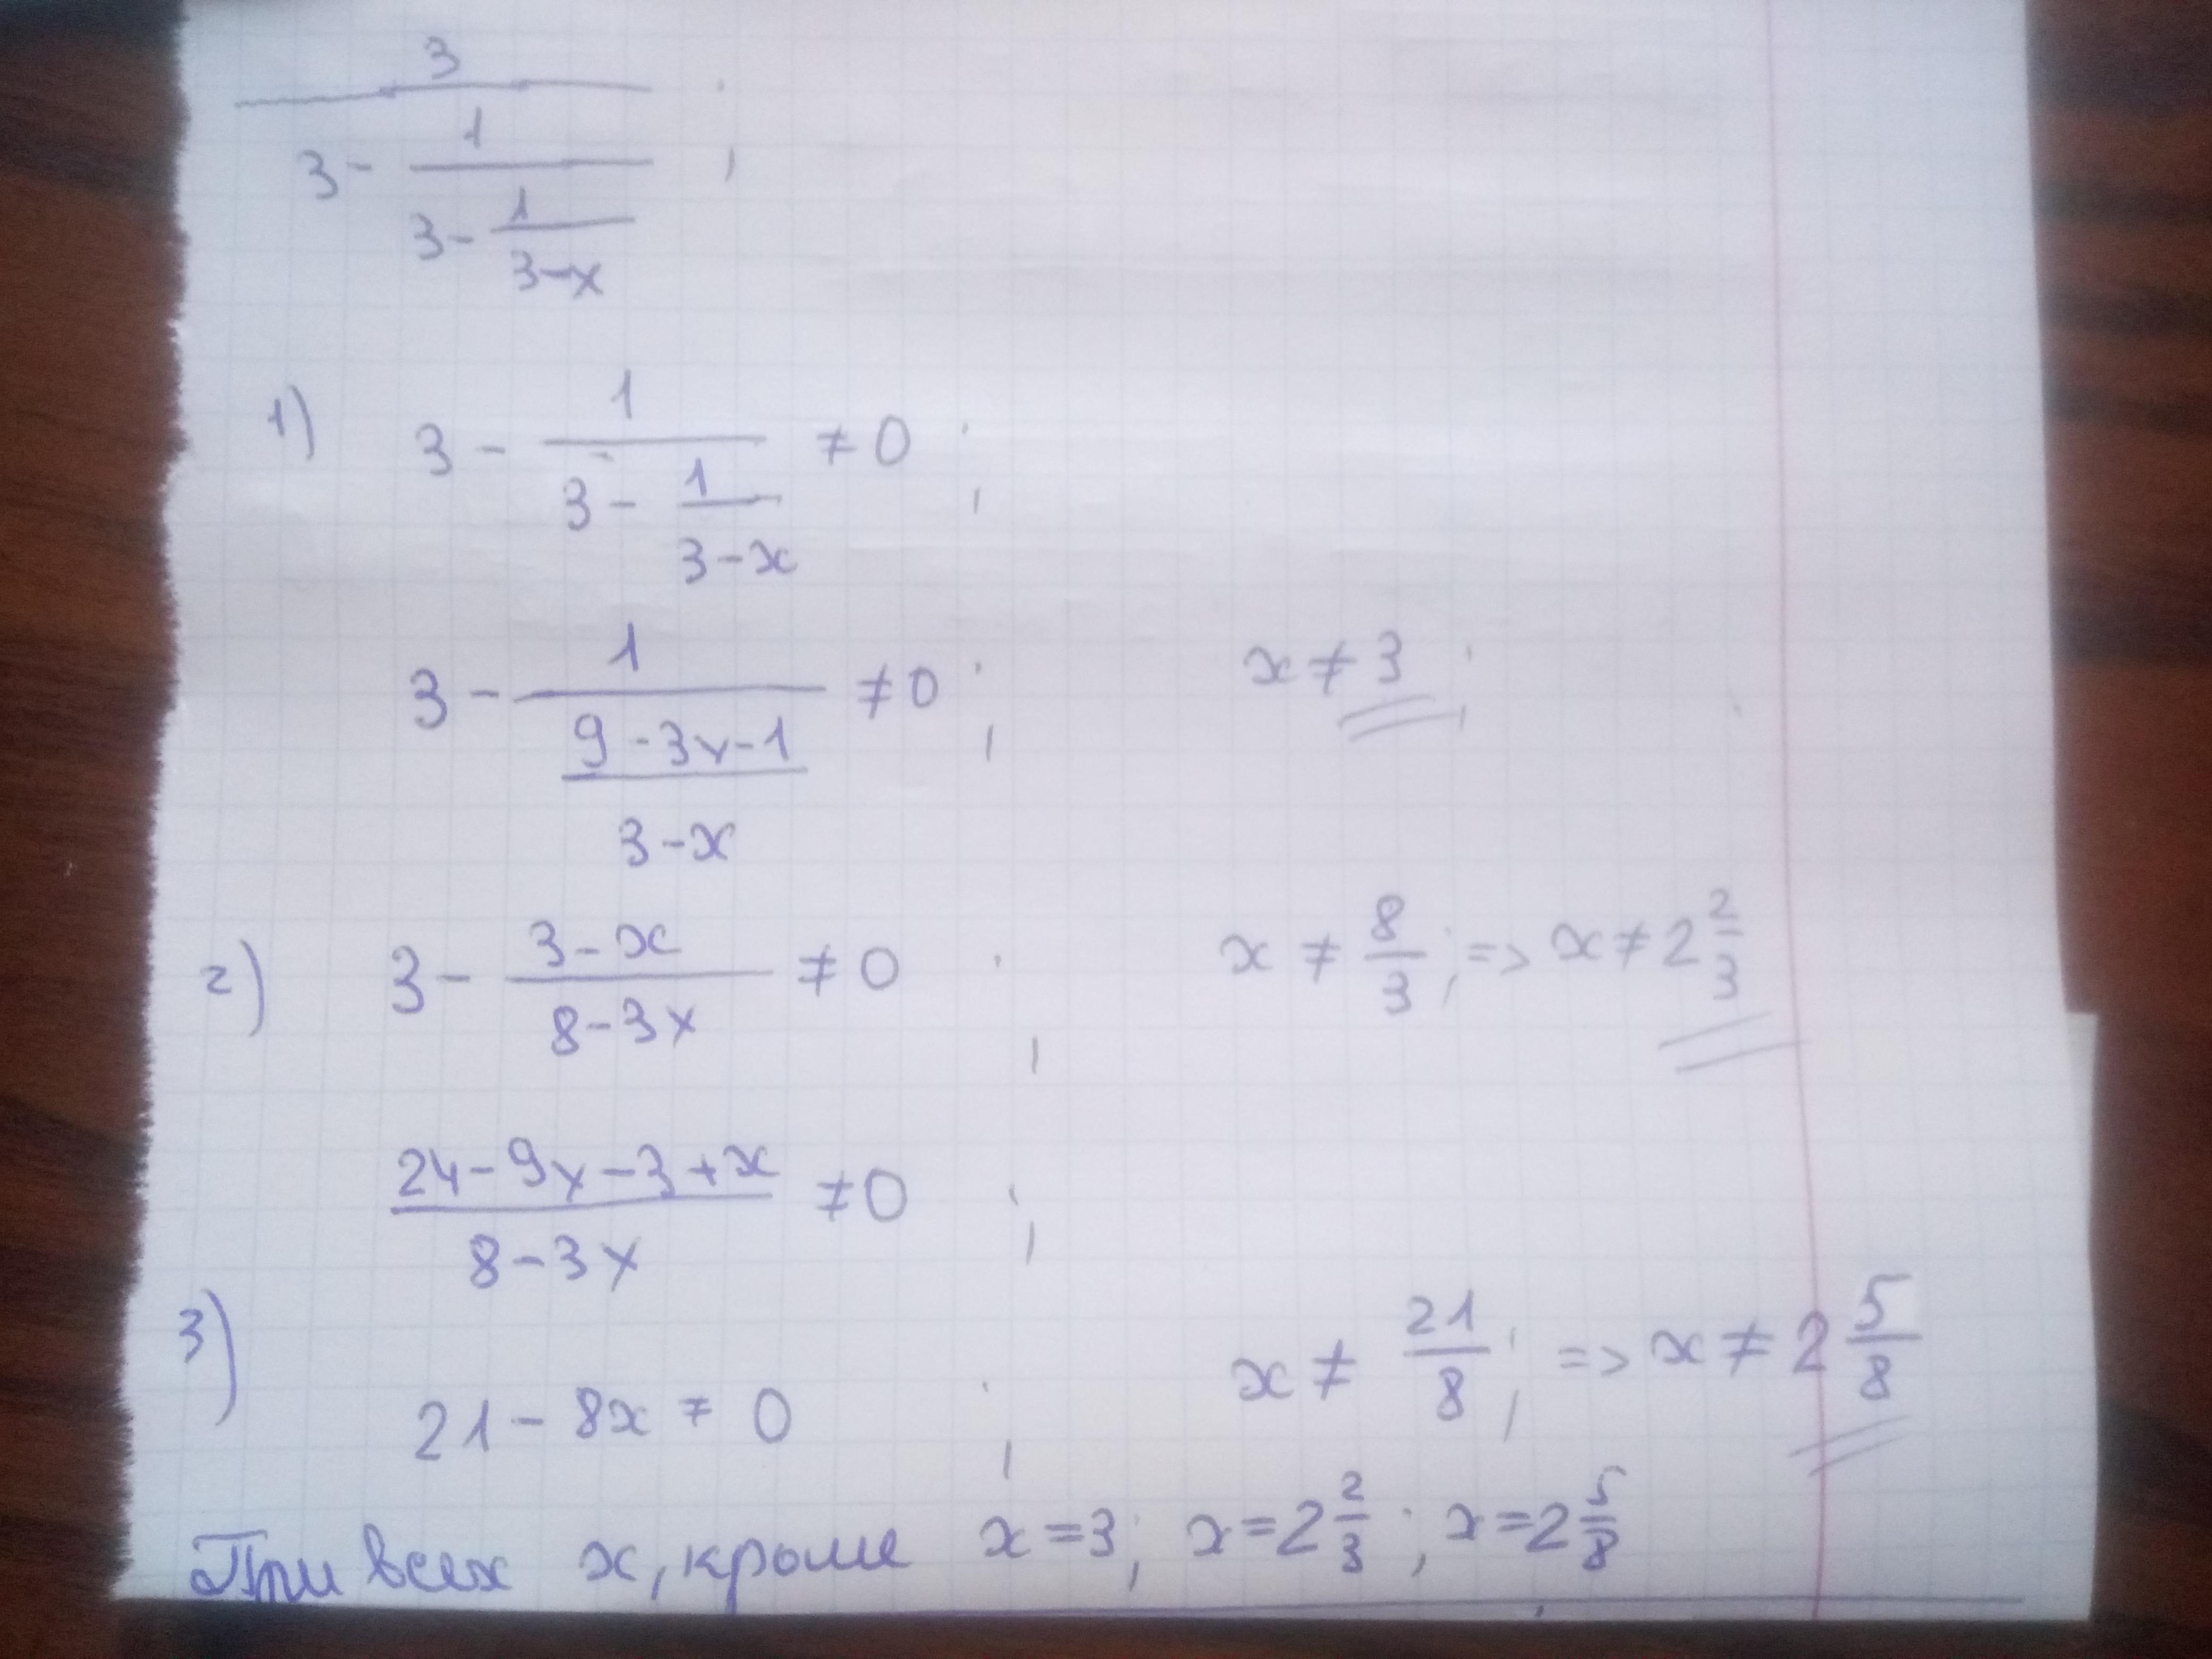 3
3 - 1 ;
3 - 1
3-x
1) 3 - 1 ≠ 0 ;
3 - 1
3-x
3 - 1 ≠ 0 ; x ≠ 3 ;
9-3x-1
3-x
2) 3 - 3-x ≠ 0 ; x ≠ 8/3 ; => x ≠ 2 2/3
8-3x
24-9x-3+x ≠ 0 ;
8-3x
3) 21 - 8x ≠ 0 ; x ≠ 21/8 ; => x ≠ 2 5/8
При всех x, кроме x=3; x=2 2/3 ; x=2 5/8